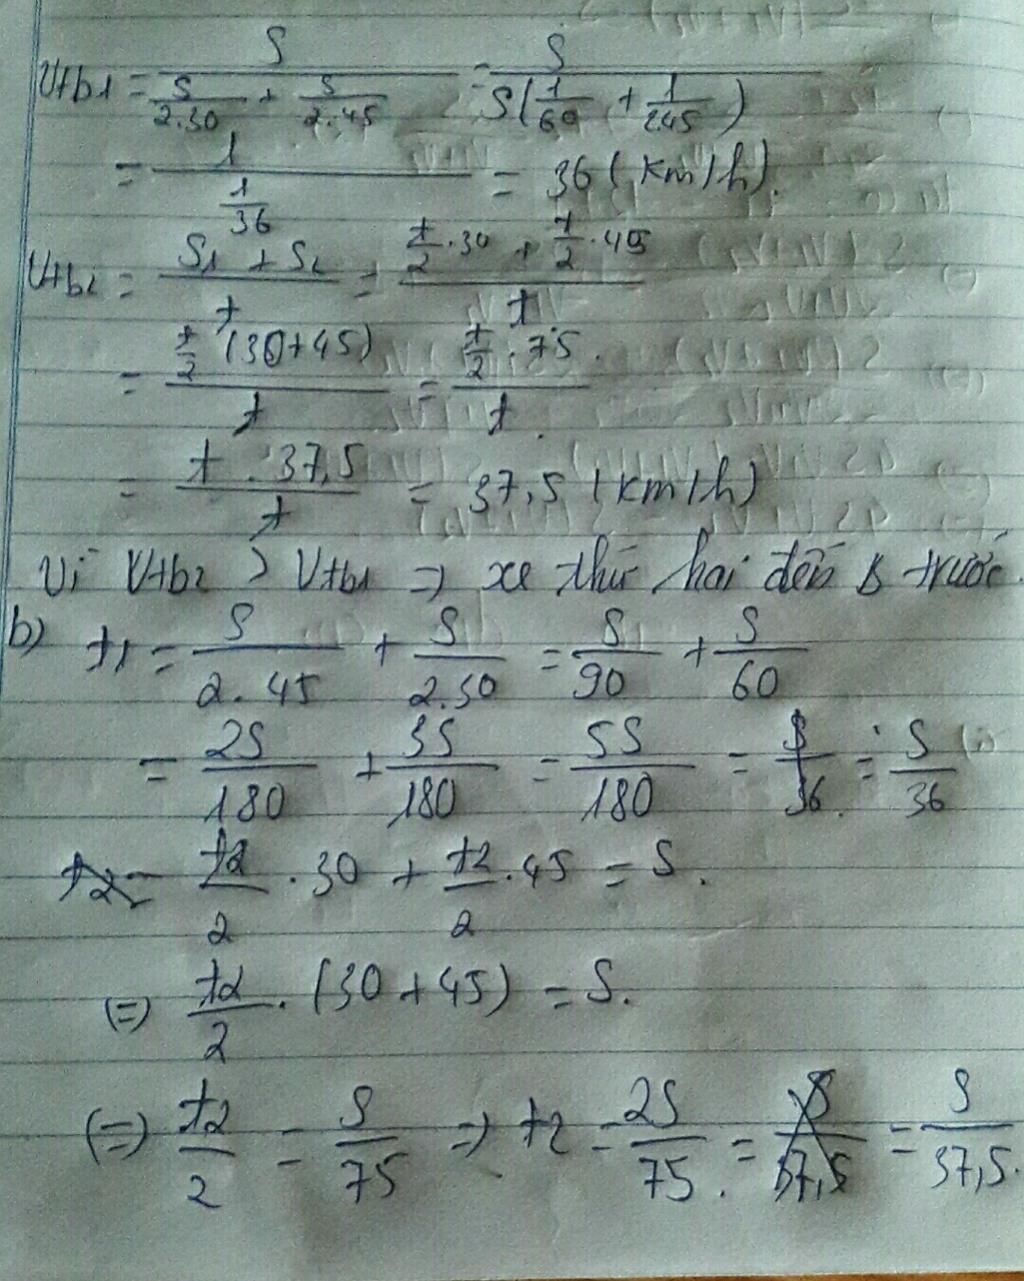 Vtb1 = S / (S/2.30 + S/2.45) = S / S(1/60 + 1/2.45)
= 1 / (1/36) = 36 (km/h).
Vtb2 = (S1 + S2) / t = (t/2 .30 + t/2 .45) / t
= t/2 (30+45) / t = t/2 . 75 / t.
= t . 37,5 / t = 37,5 (km/h)
Vì Vtb2 > Vtb1 => xe thứ hai đến B trước.
b) t1 = S/2.45 + S/2.30 = S/90 + S/60
= 2S/180 + 3S/180 = 5S/180 = S/36 = S/36
t2/2 . 30 + t2/2 . 45 = S.
(=) t2/2 . (30 + 45) = S.
(=) t2/2 = S/75 => t2 = 2S/75. = S/37,5 = S/37,5.